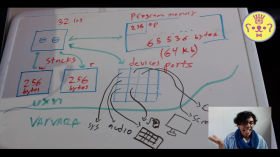 32 ins
Program memory
256 op
65 536 bytes
(64 kb)
stacks
devices ports
256
bytes
256
bytes
uxn
VARVARA
sys
audio